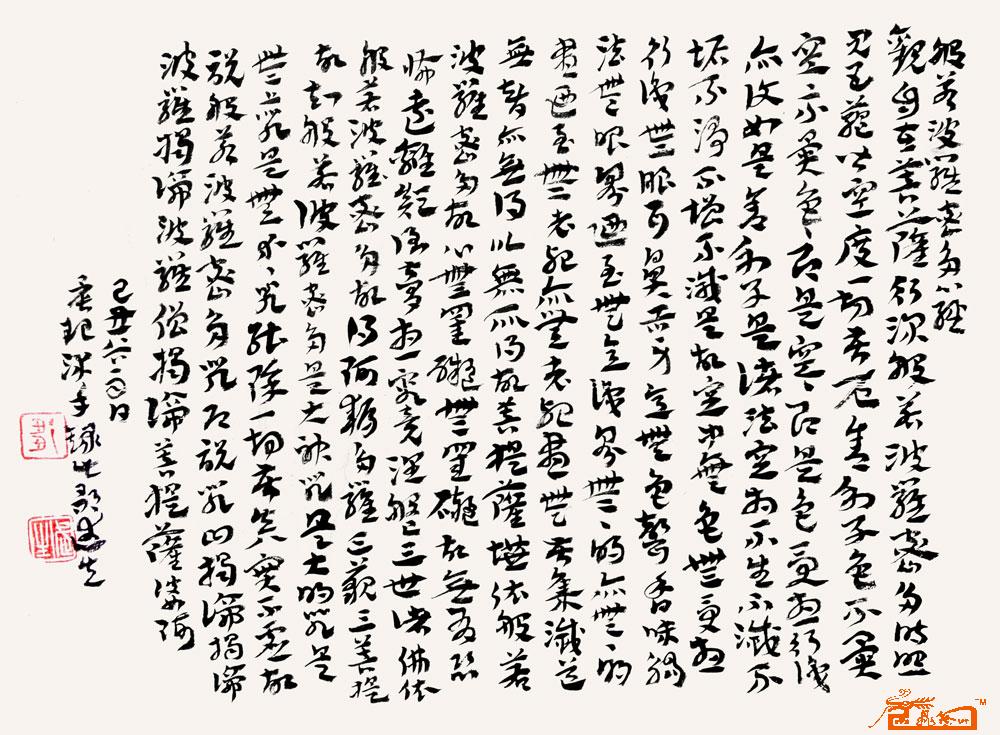 般若波羅蜜多心經
觀自在菩薩行深般若波羅蜜多時照
見五蘊皆空度一切苦厄舍利子色不異
空々不異色々即是空々即是色受想行識
亦復如是舍利子是諸法空相不生不滅不
垢不淨不增不減是故空中無色無受想
行識無眼耳鼻舌身意無色聲香味觸
法無眼界迺至無意識界無々明亦無々明
盡迺至無老死亦無老死盡無苦集滅道
無智亦無得以無所得故菩提薩埵依般若
波羅蜜多故心無罣礙無罣礙故無有恐
怖遠離顛倒夢想究竟涅槃三世諸佛依
般若波羅蜜多故得阿耨多羅三藐三菩提
故知般若波羅蜜多是大神咒是大明咒是
無上咒是無等々咒能除一切苦真實不虛故
說般若波羅蜜多咒即說咒曰揭諦揭諦
波羅揭諦波羅僧揭諦菩提薩婆訶
己丑六日